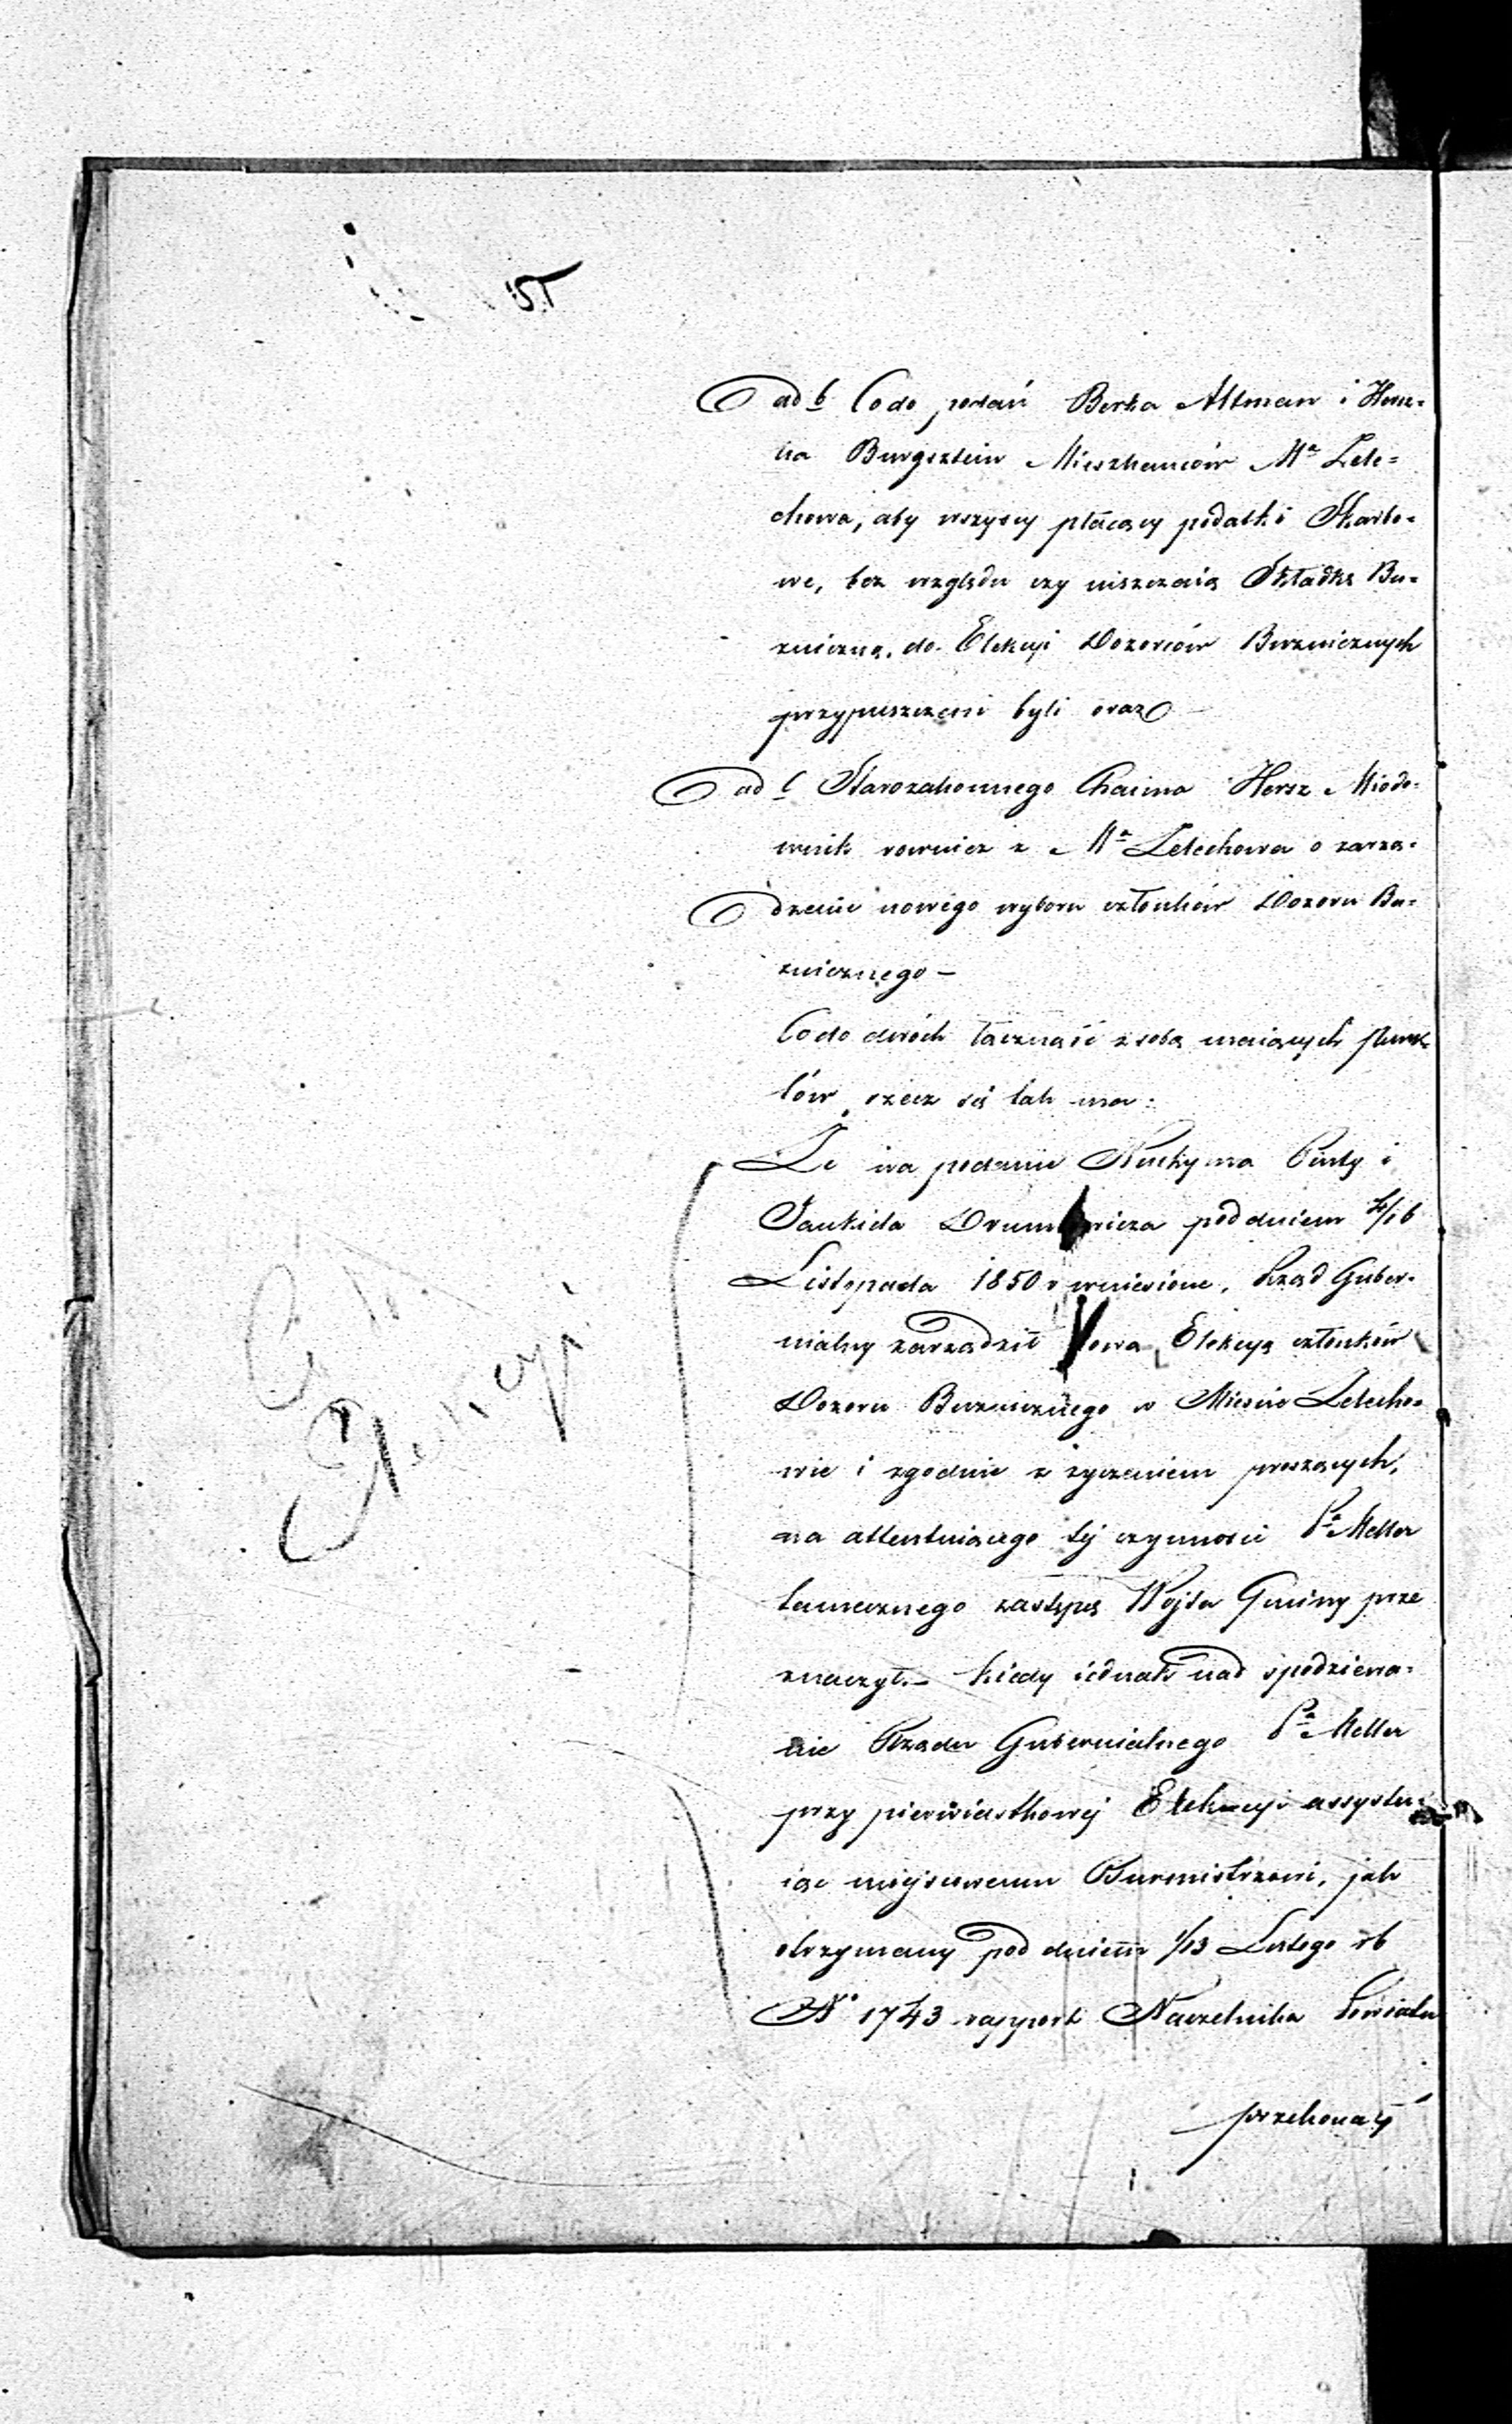 ad b Co do podań Berka Altman i Hersz-
ka Burgsztein Mieszkańców Mª Zele-
chowa, aby wszyscy płacący podatki Skarbo-
we, bez względu czy uiszczaią Składkę Bu-
zniczną, do Elekcyi Dozorców Buzniczych
przypuszczeni byli oraz
ad c Starozakonnego Chaima Hersz Miodo-
wnik rownież z Mª Zelechowa o zarzą-
dzenie nowego wyboru członków Dozoru Bu-
znicznego —
Co do dwóch łączność z sobą maiących punk-
tów, rzecz się tak ma:
Że na podanie Nuchyma Pinty i
Jankiela pod dniem 4/16
Listopada 1850 r wniesione, Rząd Guber-
nialny zarządził Nową Elekcyą członków
Dozoru Buzniczego w Mieście Zelecho-
wie i zgodnie z życzeniem proszących,
na attentuiącego tej czynności Pª Meller
tamecznego zastępcę Wojta Gminy prze
znaczył. — Kiedy iednak nad spodziewa-
nie Rządu Gubernialnego Pª Meller
przy pierwiastkowej Elekcyi assystu-
iąc miejscowemu Burmistrzowi, jak
otrzymany pod dniem 1/13 Lutego rb
Nº 1743 rapport Naczelnika Powiatu
przekonał